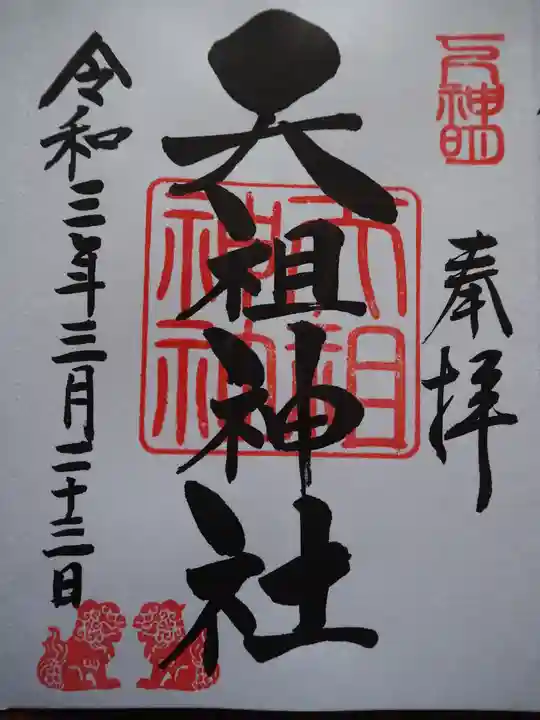 奉拝
天祖神社
令和三年三月二十三日
天祖
神社